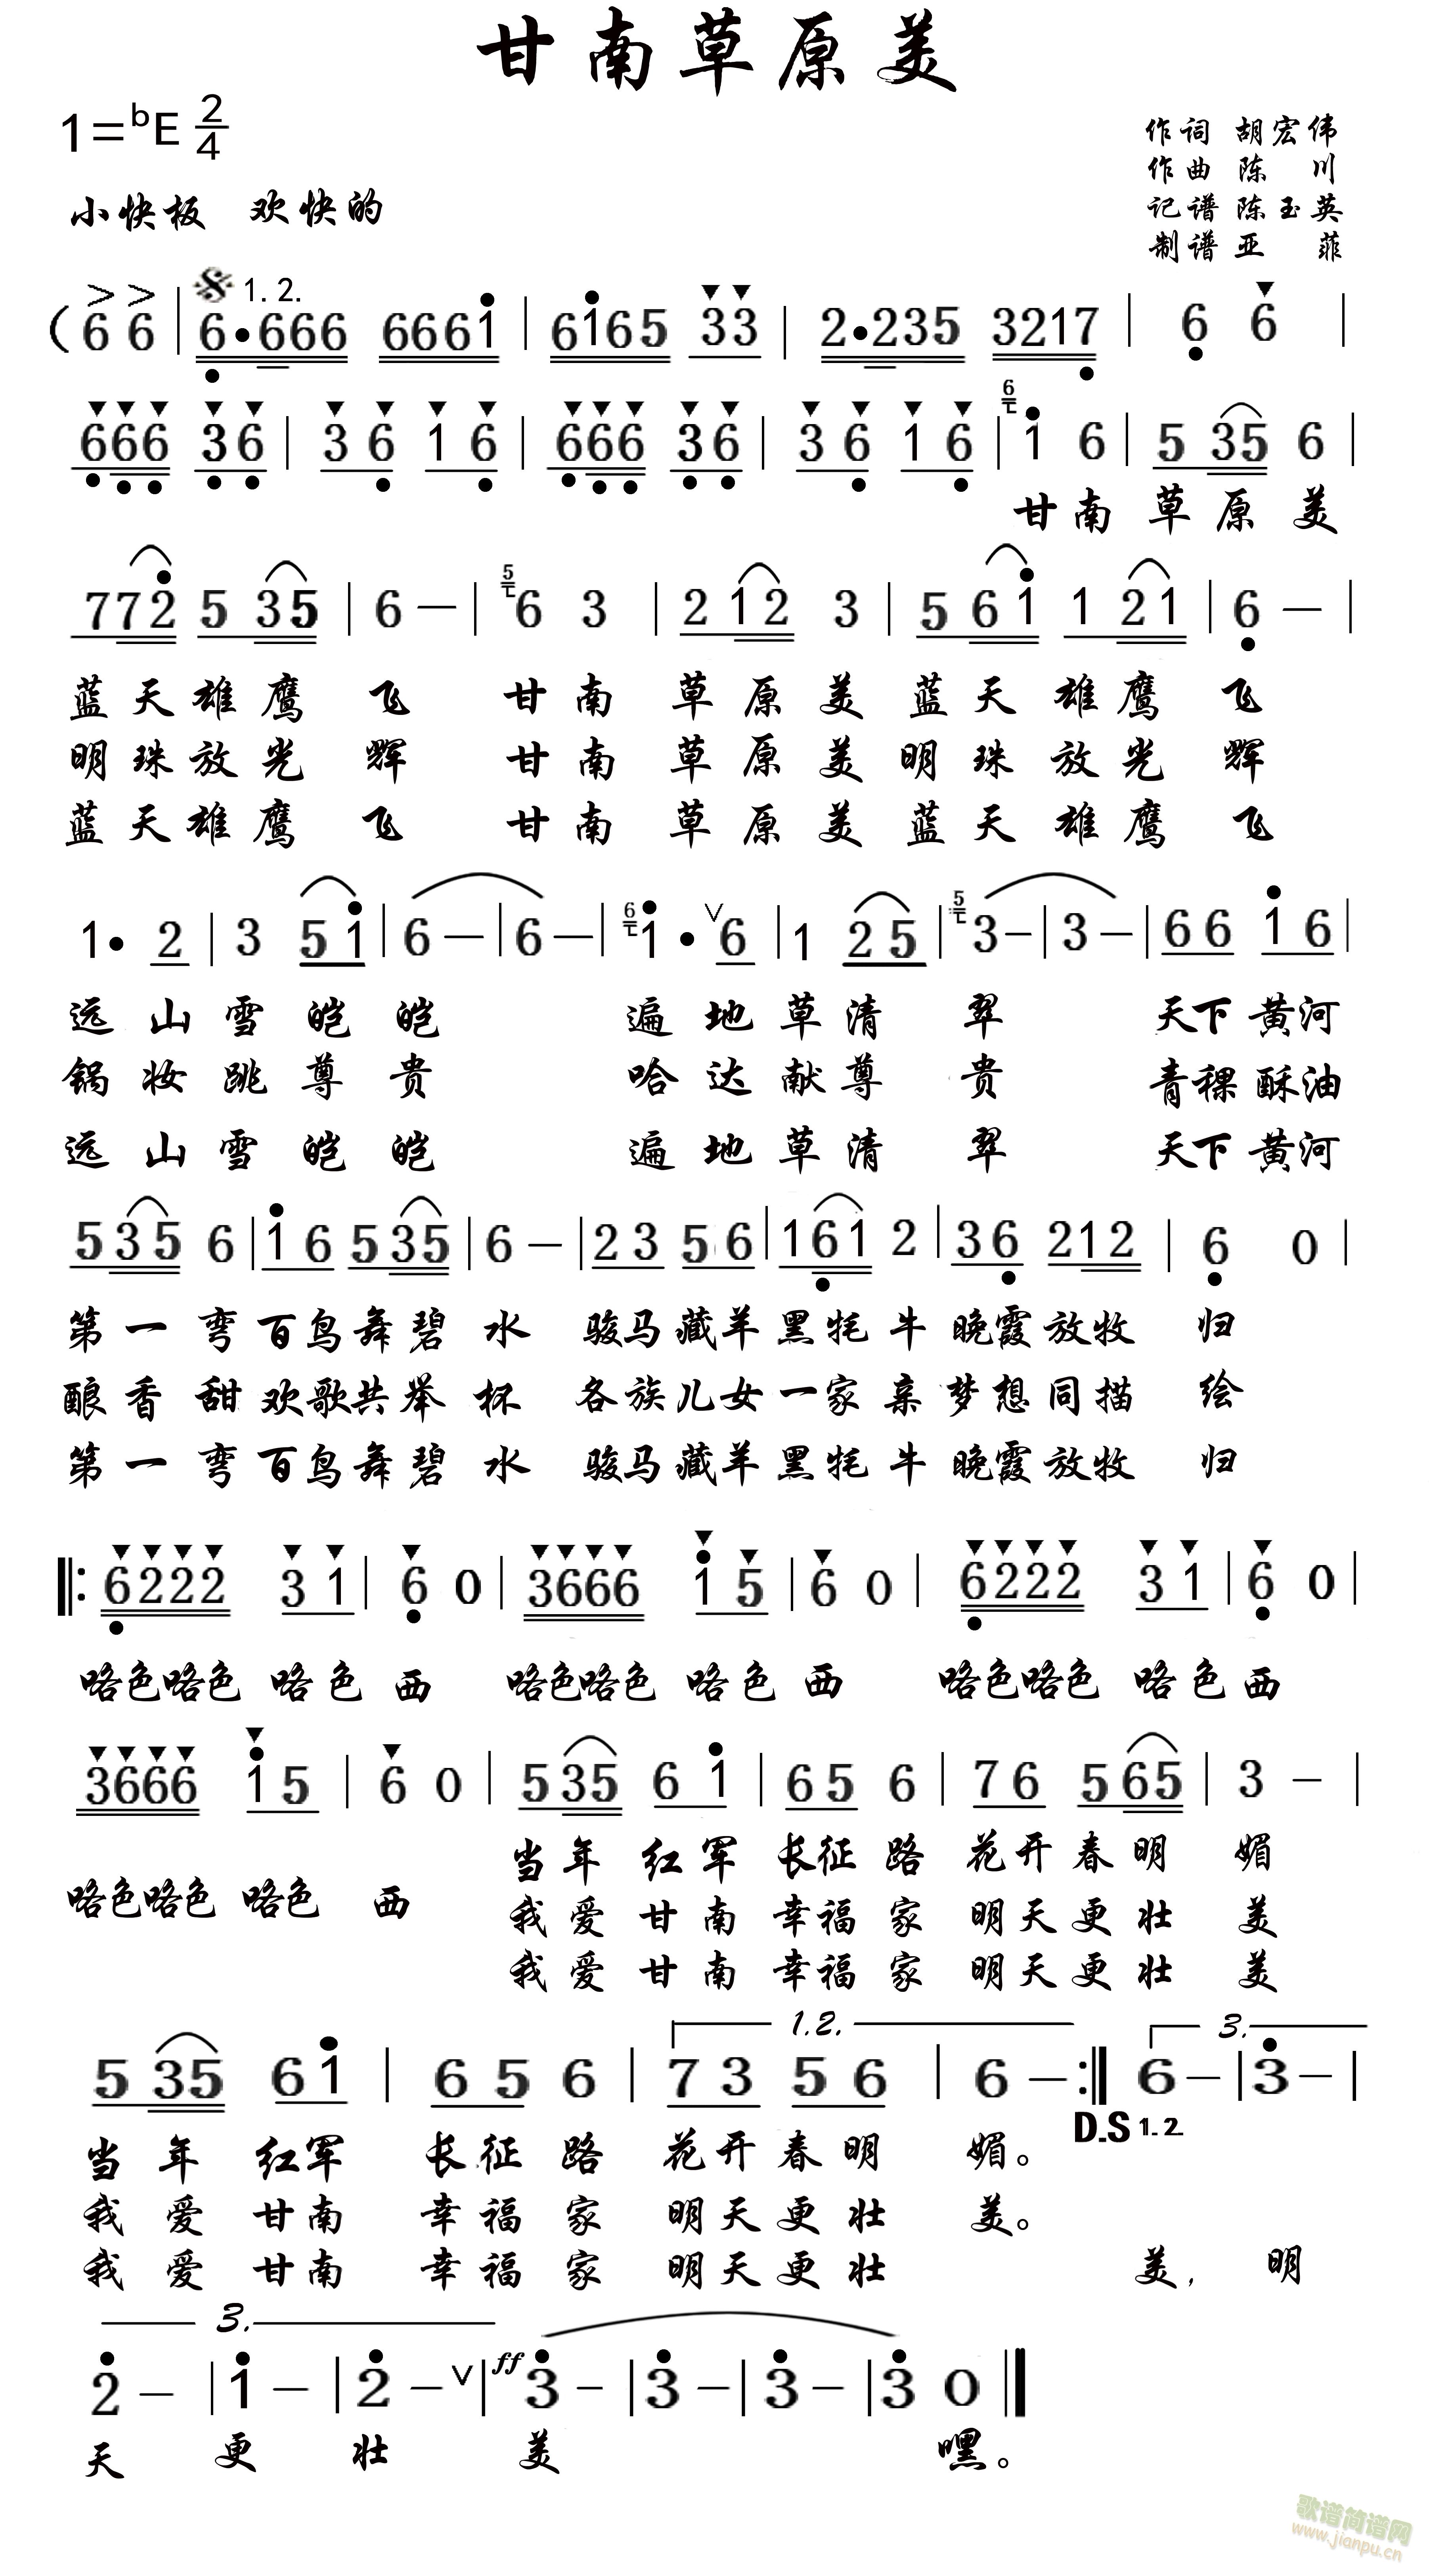 甘南草原美
1=bE 2/4
作词 胡宏伟
作曲 陈 川
记谱 陈玉英
制谱 亚 菲
小快板 欢快的
1.2.
(6 6 | 6·666 6661 | 6165 33 | 2·235 3217 | 6 6 |
666 36 | 36 16 | 666 36 | 36 16 | 6 1 6 | 5 35 6 |
甘南 草原美
772 5 35 | 6 — | 5 6 3 | 2 12 3 | 5 61 1 21 | 6 — |
蓝天雄鹰 飞 甘南 草原美 蓝天 雄鹰 飞
明珠放光 辉 甘南 草原美 明珠 放光 辉
蓝天雄鹰 飞 甘南 草原美 蓝天 雄鹰 飞
1· 2 | 3 51 | 6 — | 6 — | 6 1· ∨ 6 | 1 25 | 5 3 — | 3 — | 66 16 |
远山雪皑皑 遍地草清 翠 天下黄河
锅妆跳尊贵 哈达献尊 贵 青稞酥油
远山雪皑皑 遍地草清 翠 天下黄河
5 35 6 | 16 5 35 | 6 — | 23 56 | 1 61 2 | 36 212 | 6 0 |
第一弯百鸟舞碧 水 骏马藏羊黑牦牛晚霞放牧 归
酿香甜欢歌共举 杯 各族儿女一家亲梦想同描 绘
第一弯百鸟舞碧 水 骏马藏羊黑牦牛晚霞放牧 归
‖: 6222 31 | 6 0 | 3666 15 | 6 0 | 6222 31 | 6 0 |
咯色咯色 咯色 西 咯色咯色 咯色 西 咯色咯色 咯色西
3666 15 | 6 0 | 5 35 61 | 65 6 | 76 5 65 | 3 — |
当年 红军 长征路 花开春明 媚
咯色咯色 咯色 西
我爱 甘南 幸福家 明天更壮 美
我爱 甘南 幸福家 明天更壮 美
1.2. 3.
5 35 61 | 65 6 | 73 56 | 6 — :‖ 6 — | 3 — |
D.S 1.2.
当年 红军 长征路 花开春明 媚。
我爱 甘南 幸福家 明天更壮 美。
我爱 甘南 幸福家 明天更壮 美, 明
3.
2 — | 1 — | 2 — ∨ | ff 3 — | 3 — | 3 — | 3 0 ‖
天 更 壮 美 嘿。
歌谱简谱网
www.jianpu.cn